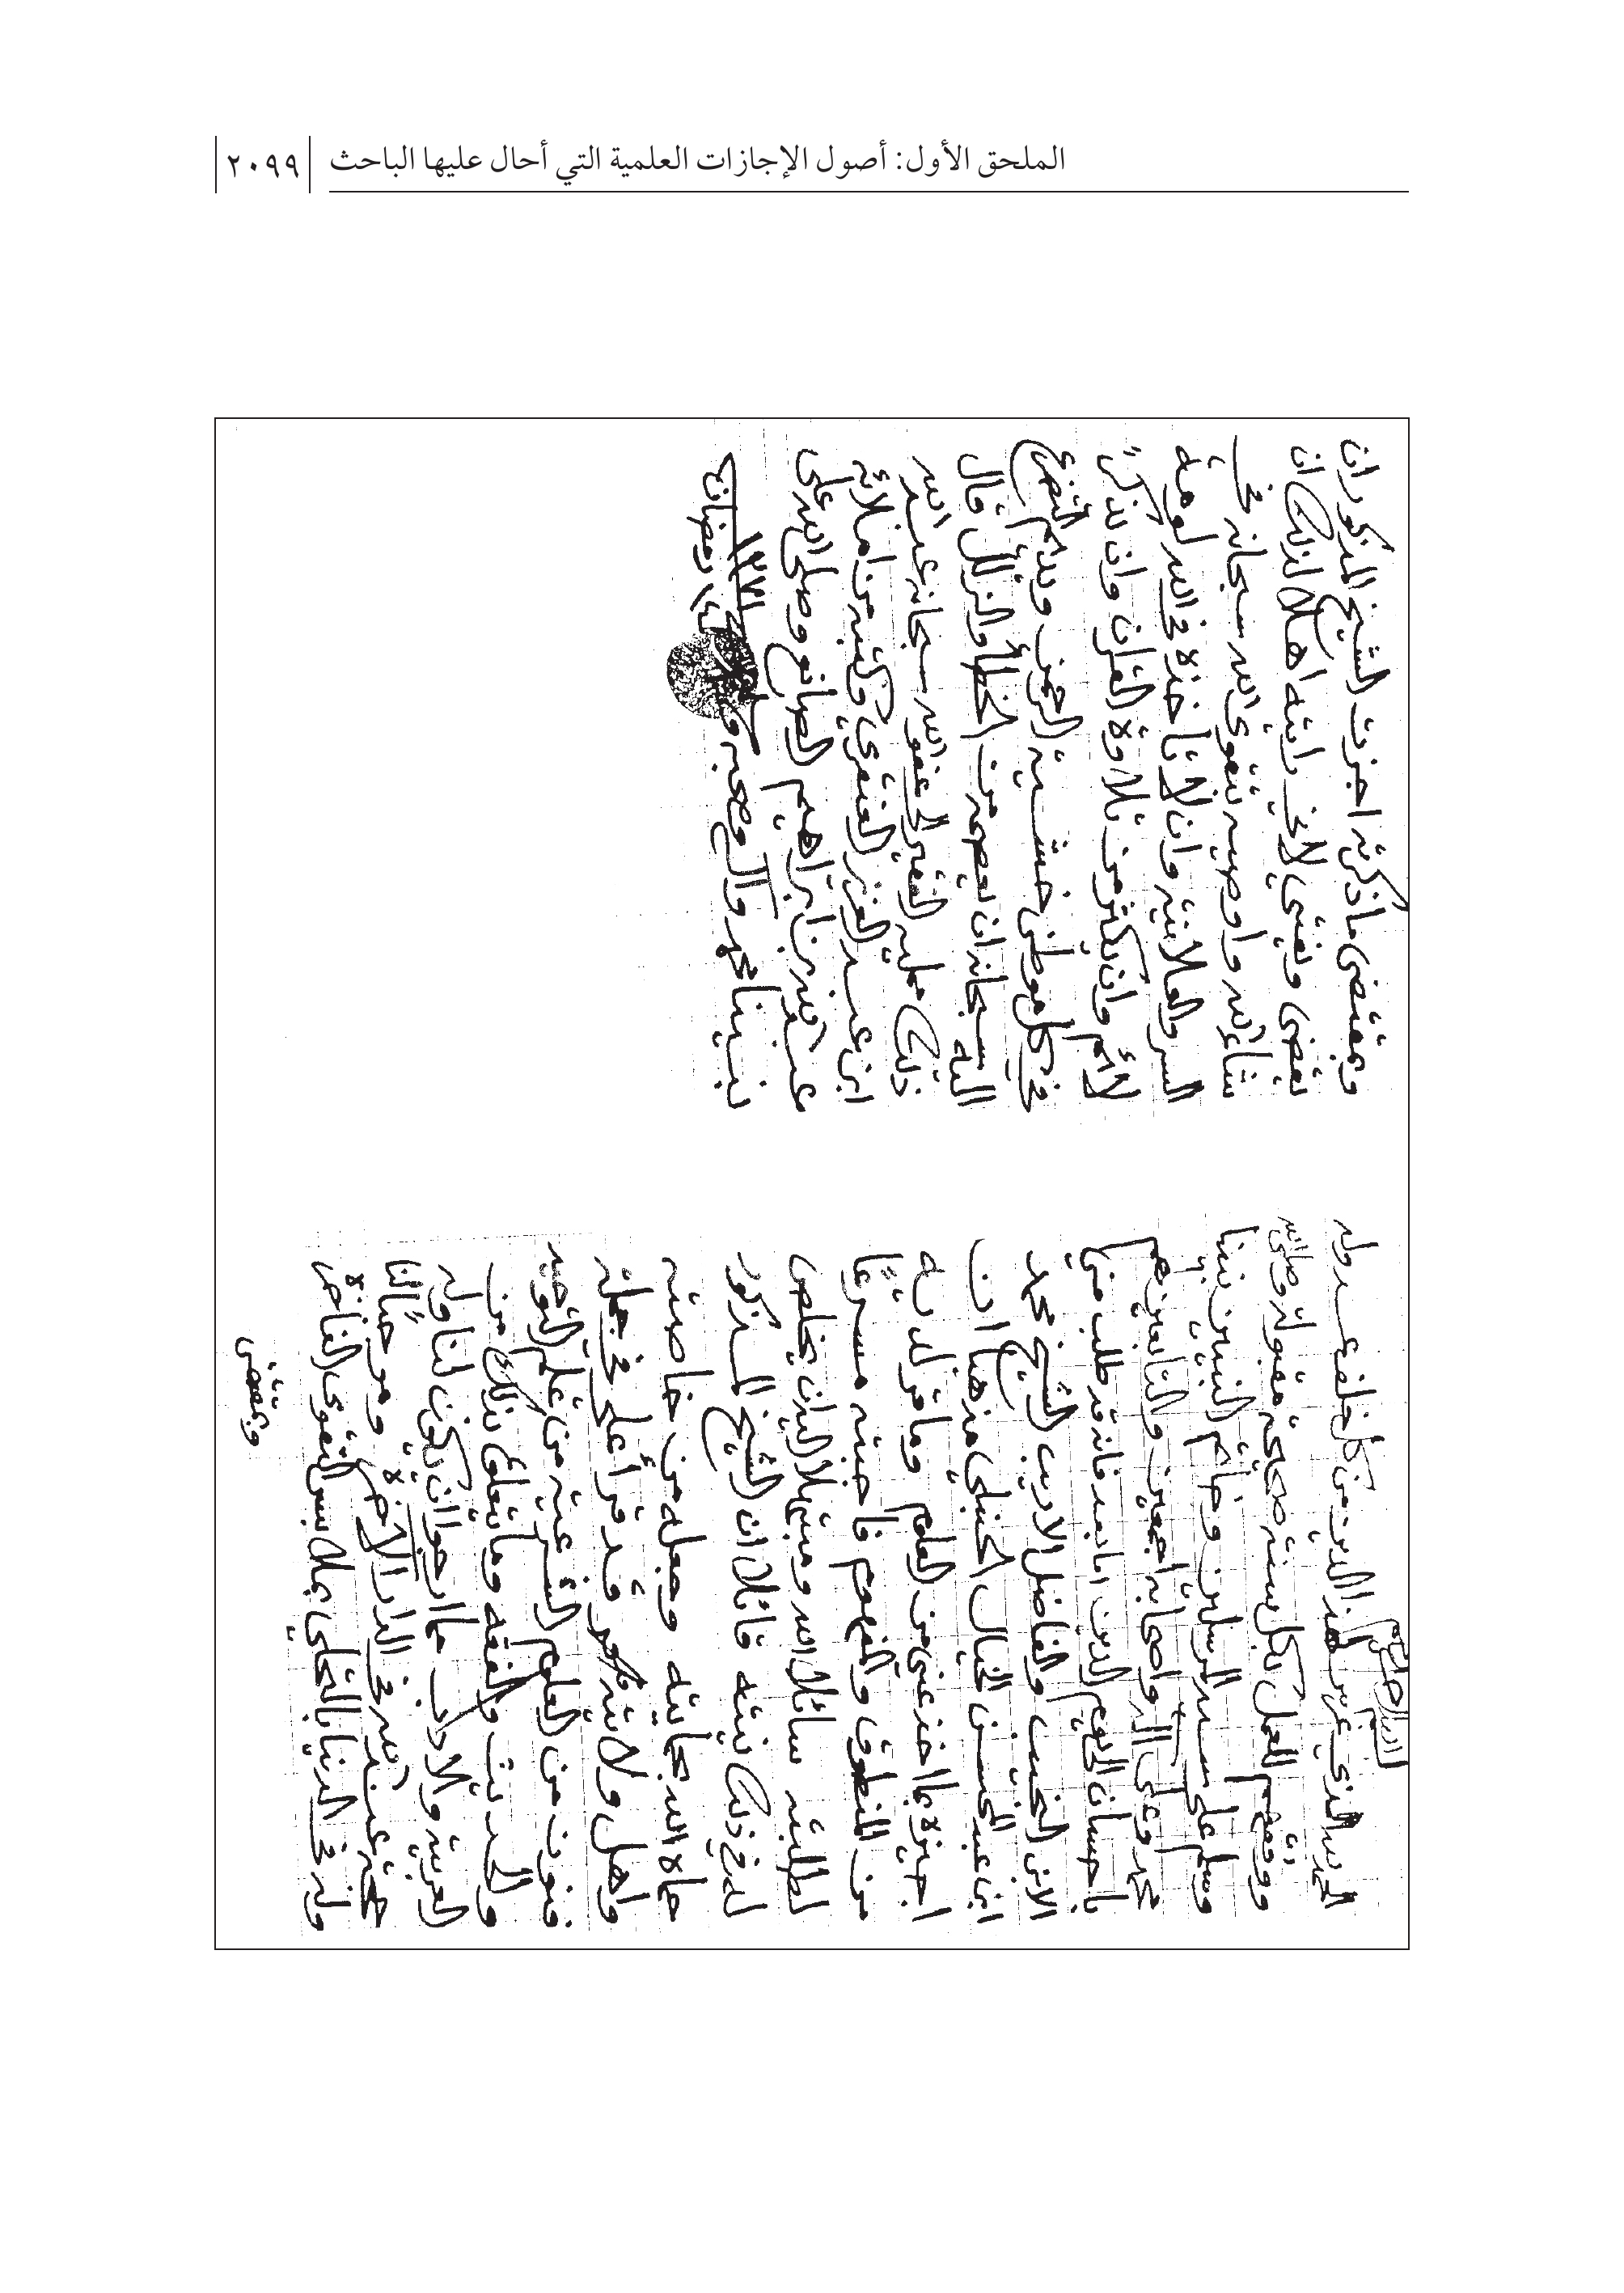 الملحق الأول: أصول الإجازات العلمية التي أحال عليها الباحث
٢٠٩٩
بسم الله الرحمن الرحيم
الحمد لله الذي غرس لهذا الدين من كل خلف عدوله
ووفقهم للعمل بكل سنة صحيحة مقبولة وصلى الله
وسلم على سيد المرسلين وخاتم النبيين نبينا
محمد وعلى آله وأصحابه أجمعين والتابعين لهم
بإحسان إلى يوم الدين اما بعد فانه قد طلب مني
الابن النجيب والفاضل الاديب الشيخ محمد
ابن عبد المحسن الخيال الحنبلي مذهبا ان
اجيزه بما اخذ عني من العلوم وما قرا لديه
من المنطوق والمفهوم فأجبته مسرعًا
لطلبته سائلا الله ومبتهلا اليه ان يخلص
له في ذلك نيته قائلا ان الشيخ المذكور
حماه الله بحمايته وجعله من خاصته
وأهل ولايته قد قرأ علي في جملة
فنون من العلوم الشرعية من علم التوحيد
والحديث والفقه وما يتعلق بذلك من
العربية والآداب مما ارجو ان يكون لنا وله
حجة عند الله في الدار الآخرة وموجبًا لنا
وله في الدنيا بالتحلي بملابس التقوى الفاخرة
وبمقتضى
وبمقتضى ما ذكرته اجزت الشيخ المذكور ان
يقضي ويفتي لاني رايته اهلا لذلك ان
شاء الله واوصيه بتقوى الله سبحانه في
السر والعلانية وان لا تأخذه في الله لومة
لائم وان يكثر من تلاوة القرآن وان يذكرًّ
في كل موطن خشية الرحمن ويديم التضرع
اليه سبحانه ان يعصمه من الخطأ والزلل قال
ذلك ممليه الفقير الى عفو الله سبحانه عبد الله
ابن عبد العزيز العنقري وكتبه من املائه
عبد الله بن ابراهيم الصانع وصلى الله على
نبينا محمد وآله وصحبه وسلم
١٤ رمضان
١٣٧١